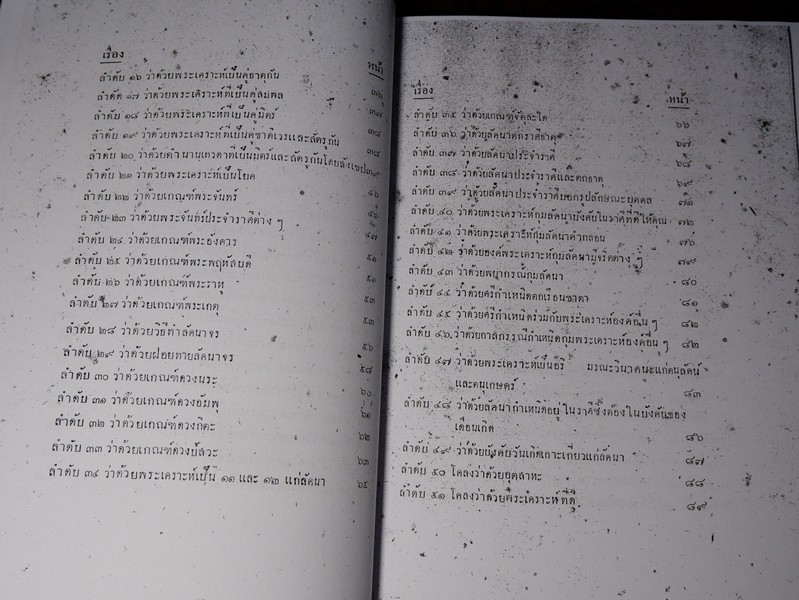 เรื่อง
หน้า
ลำดับ ๑๖ ว่าด้วยพระเคราะห์เป็นคู่ธาตุกัน ๓๖
ลำดับ ๑๗ ว่าด้วยพระเคราะห์ที่เป็นคู่สมพล
ลำดับ ๑๘ ว่าด้วยพระเคราะห์ที่เป็นคู่มิตร ๓๗
ลำดับ ๑๙ ว่าด้วยพระเคราะห์ที่เป็นคู่ชาติเวรและสัตรูกัน ๓๘
ลำดับ ๒๐ ว่าด้วยตำนานเทวดาที่เป็นมิตร์และสัตรูกันโดยสังเขป ๓๙
ลำดับ ๒๑ ว่าด้วยพระเคราะห์เป็นโยค
ลำดับ ๒๒ ว่าด้วยเกณฑ์พระจันทร์ ๔๖
ลำดับ ๒๓ ว่าด้วยพระจันทร์ประจำราศีต่าง ๆ ๔๖
ลำดับ ๒๔ ว่าด้วยเกณฑ์พระอังคาร ๔๗
ลำดับ ๒๕ ว่าด้วยเกณฑ์พระพฤหัสบดี ๕๑
ลำดับ ๒๖ ว่าด้วยเกณฑ์พระราหู ๕๑
ลำดับ ๒๗ ว่าด้วยเกณฑ์พระเกตุ ๕๓
ลำดับ ๒๘ ว่าด้วยวิธีทำลัคนาจร ๕๓
ลำดับ ๒๙ ว่าด้วยฝอยทายลัคนาจร ๕๖
ลำดับ ๓๐ ว่าด้วยเกณฑ์ดวงนระ ๕๘
ลำดับ ๓๑ ว่าด้วยเกณฑ์ดวงอัมพุ ๖๐
ลำดับ ๓๒ ว่าด้วยเกณฑ์ดวงกิตะ ๖๑
ลำดับ ๓๓ ว่าด้วยเกณฑ์ดวงปัสวะ ๖๒
๖๓
ลำดับ ๓๔ ว่าด้วยพระเคราะห์เป็น ๑๑ และ ๑๒ แก่ลัคนา ๖๕
เรื่อง
หน้า
ลำดับ ๓๕ ว่าด้วยเกณฑ์จัตุสะใด ๖๖
ลำดับ ๓๖ ว่าด้วยลัคนาตกราศีธาตุ ๖๗
ลำดับ ๓๗ ว่าด้วยลัคนาประจำราศี ๖๘
ลำดับ ๓๘ ว่าด้วยลัคนาประจำราศีและตกธาตุ ๖๙
ลำดับ ๓๙ ว่าด้วยลัคนาประจำราศีบอกรูปลักษณะบุคคล ๗๑
ลำดับ ๔๐ ว่าด้วยพระเคราะห์กุมลัคนาบังคับในราศีที่ดีให้คุณ ๗๖
ลำดับ ๔๑ ว่าด้วยพระเคราะห์กุมลัคนาคำกลอน ๗๖
ลำดับ ๔๒ ว่าด้วยองค์พระเคราะห์กุมลัคนามีจริตต่าง ๆ ๗๙
ลำดับ ๔๓ ว่าด้วยพยากรณ์กุมลัคนา ๘๐
ลำดับ ๔๔ ว่าด้วยศรีกำเหนิดตกเรือนชาตา ๘๑
ลำดับ ๔๕ ว่าด้วยศรีกำเหนิดร่วมกับพระเคราะห์องค์อื่น ๆ ๘๒
ลำดับ ๔๖ ว่าด้วยกาลกรรณีกำเหนิดกุมพระเคราะห์องค์อื่น ๆ ๘๒
ลำดับ ๔๗ ว่าด้วยพระเคราะห์เป็นอริ มรณะวินาศนะแก่ตนุลัคน์
และตนุเกษตร์ ๘๓
ลำดับ ๔๘ ว่าด้วยลัคนากำเหนิดอยู่ในราศีซึ่งต้องในบังคับของ
เดือนเกิด ๘๖
ลำดับ ๔๙ ว่าด้วยบังคับวันเกิดเกาะเกี่ยวแก่ลัคนา ๘๗
ลำดับ ๕๐ โคลงว่าด้วยอุตสาหะ ๘๘
ลำดับ ๕๑ โคลงว่าด้วยพระเคราะห์ที่ดี ๘๙